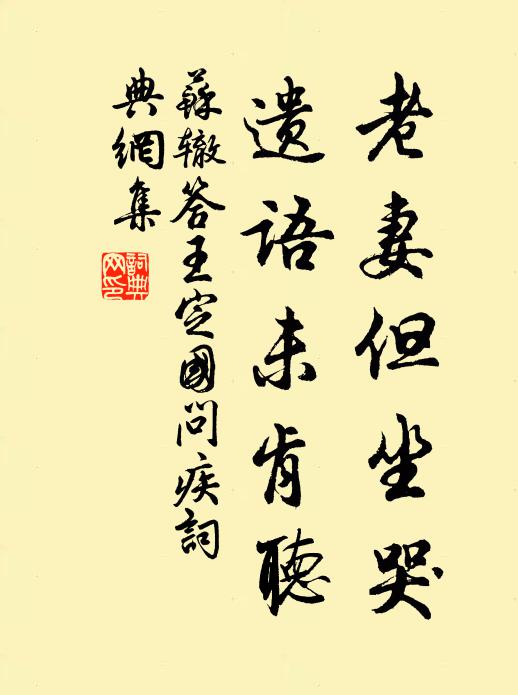 老妻但坐哭
遗語未肯聽
蘇辙答王定國问疾詞
典網集
詞典
网印